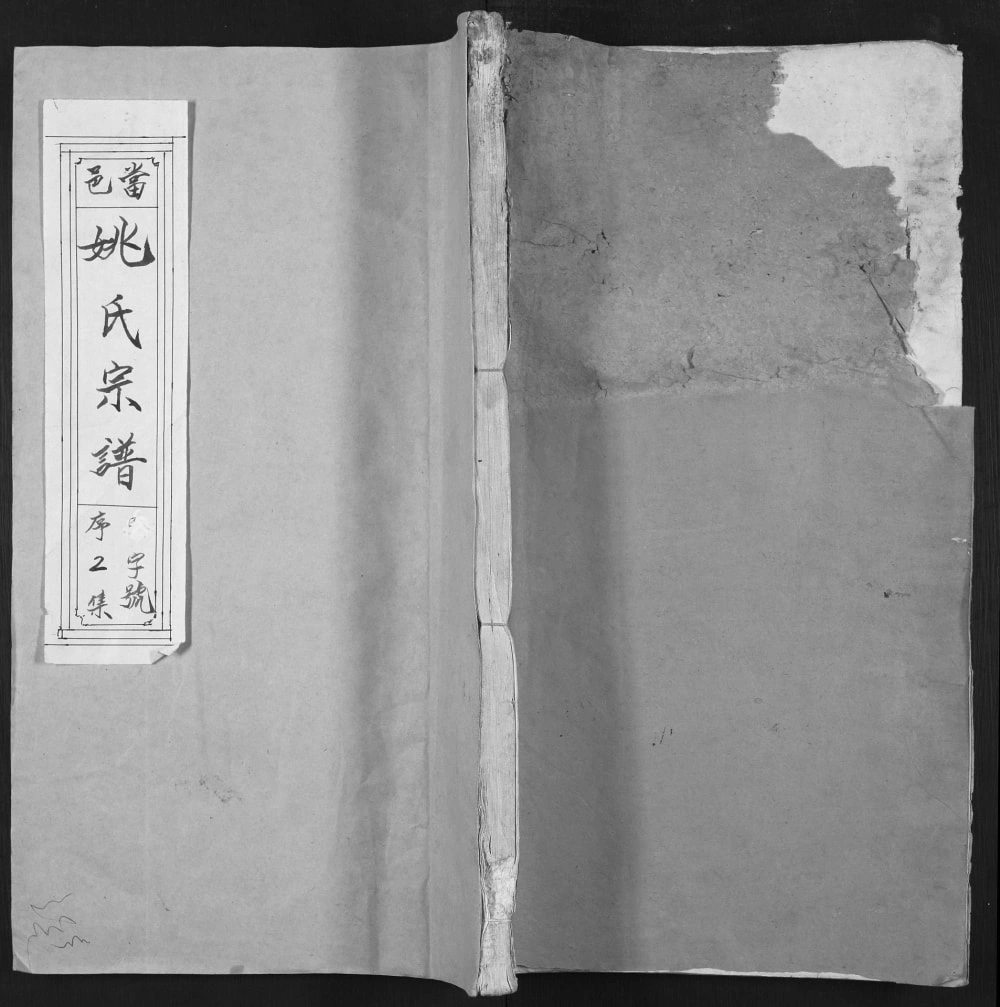 當邑
姚氏宗譜
字號
序2集